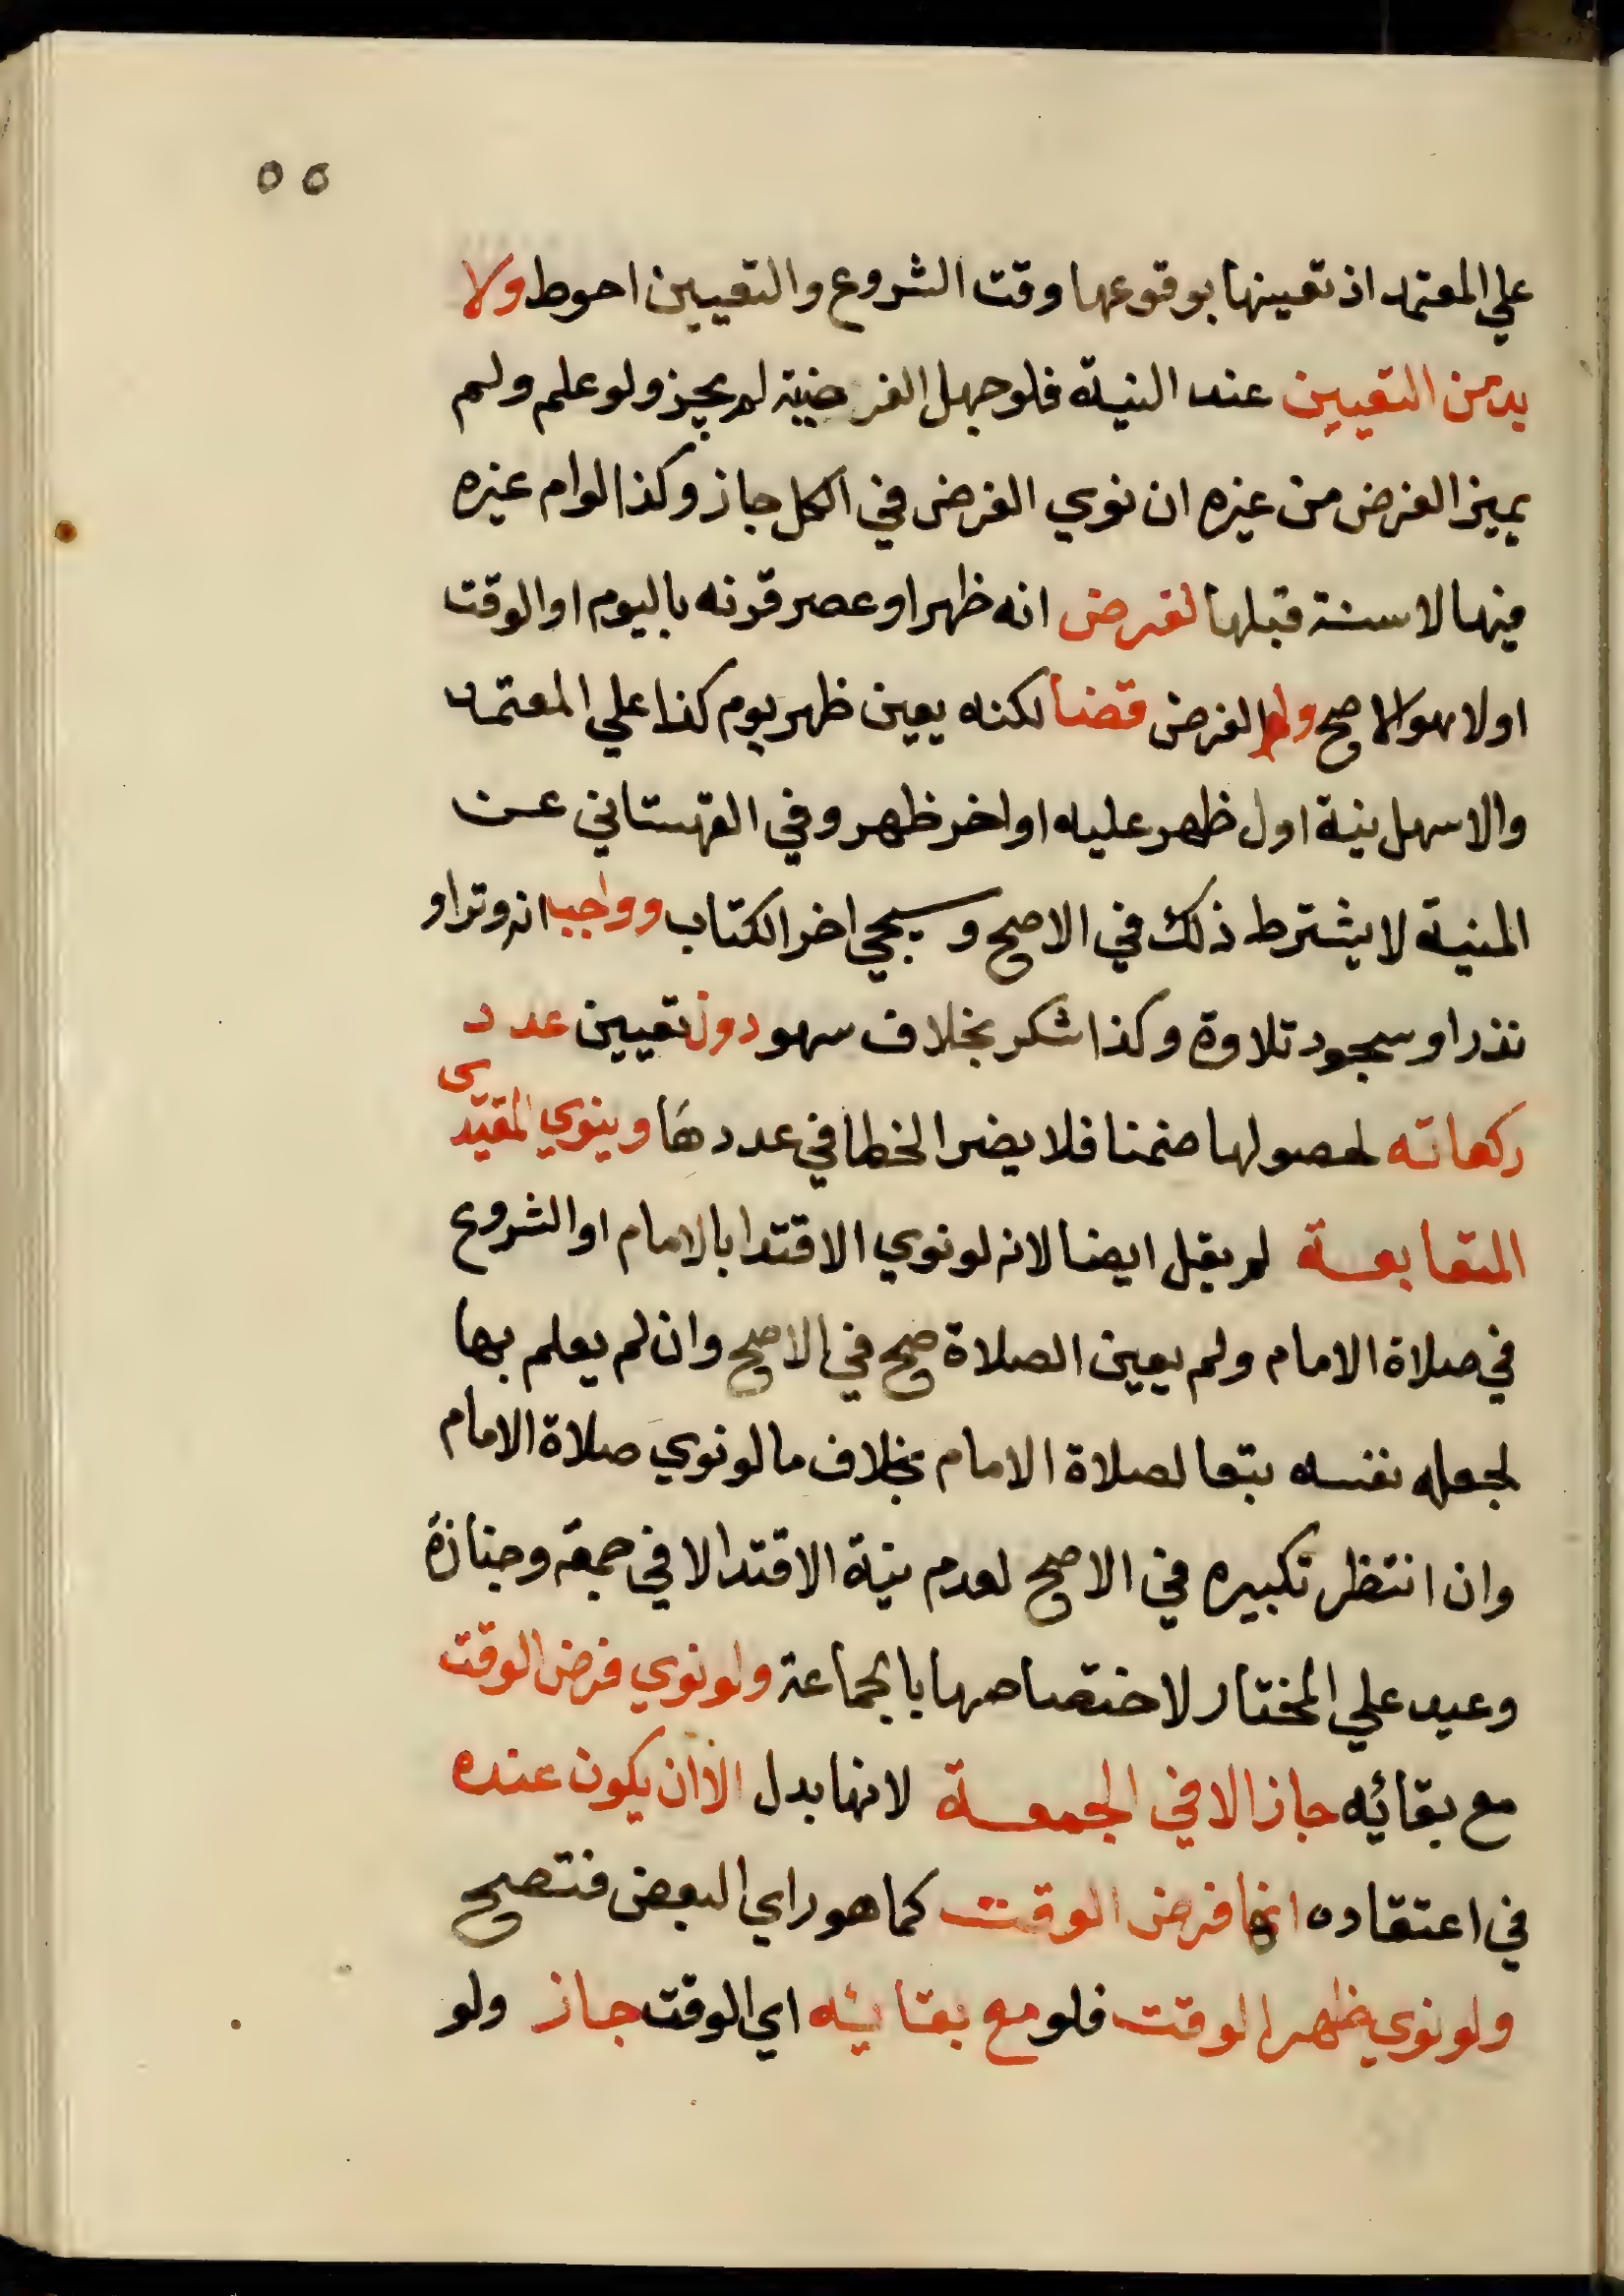 ٥٥
علي المعتمد اذ تعينها بوقوعها وقت الشروع والتعيين احوط ولا
بد من التعيين عند النية فلو جهل الفرضية لم يجز ولو علم ولم
يميز الفرض من غيره ان نوي الفرض في الكل جاز وكذا لو ام غيره
فيها لا سنة قبلها لفرض انه ظهر او عصر قرنه باليوم او الوقت
اولا هو الاصح ولو الفرض قضا لكنه يعين ظهر يوم كذا علي المعتمد
والاسهل نية اول ظهر عليه او اخر ظهر وفي القهستاني عن
المنية لا يشترط ذلك في الاصح وسيجي اخر الكتاب وواجب انه وتر او
نذر او سجود تلاوة وكذا شكر بخلاف سهو دون تعيين عدد
ركعاته لحصولها ضمنا فلا يضر الخطا في عددها وينوي المقتدى
المتابعة لم يقل ايضا لانه لو نوي الاقتدا بالامام او الشروع
في صلاة الامام ولم يعين الصلاة صح في الاصح وان لم يعلم بها
لجعله نفسه تبعا لصلاة الامام بخلاف ما لو نوي صلاة الامام
وان انتظر تكبيره في الاصح لعدم نية الاقتدا الا في جمعة وجنازة
وعيد علي المختار لاختصاصها بالجماعة ولو نوي فرض الوقت
مع بقائه جاز الا في الجمعة لانها بدل الا ان يكون عنده
في اعتقاده انها فرض الوقت كما هو راي البعض فتصح
ولو نوي ظهر الوقت فلو مع بقائه اي الوقت جاز ولو